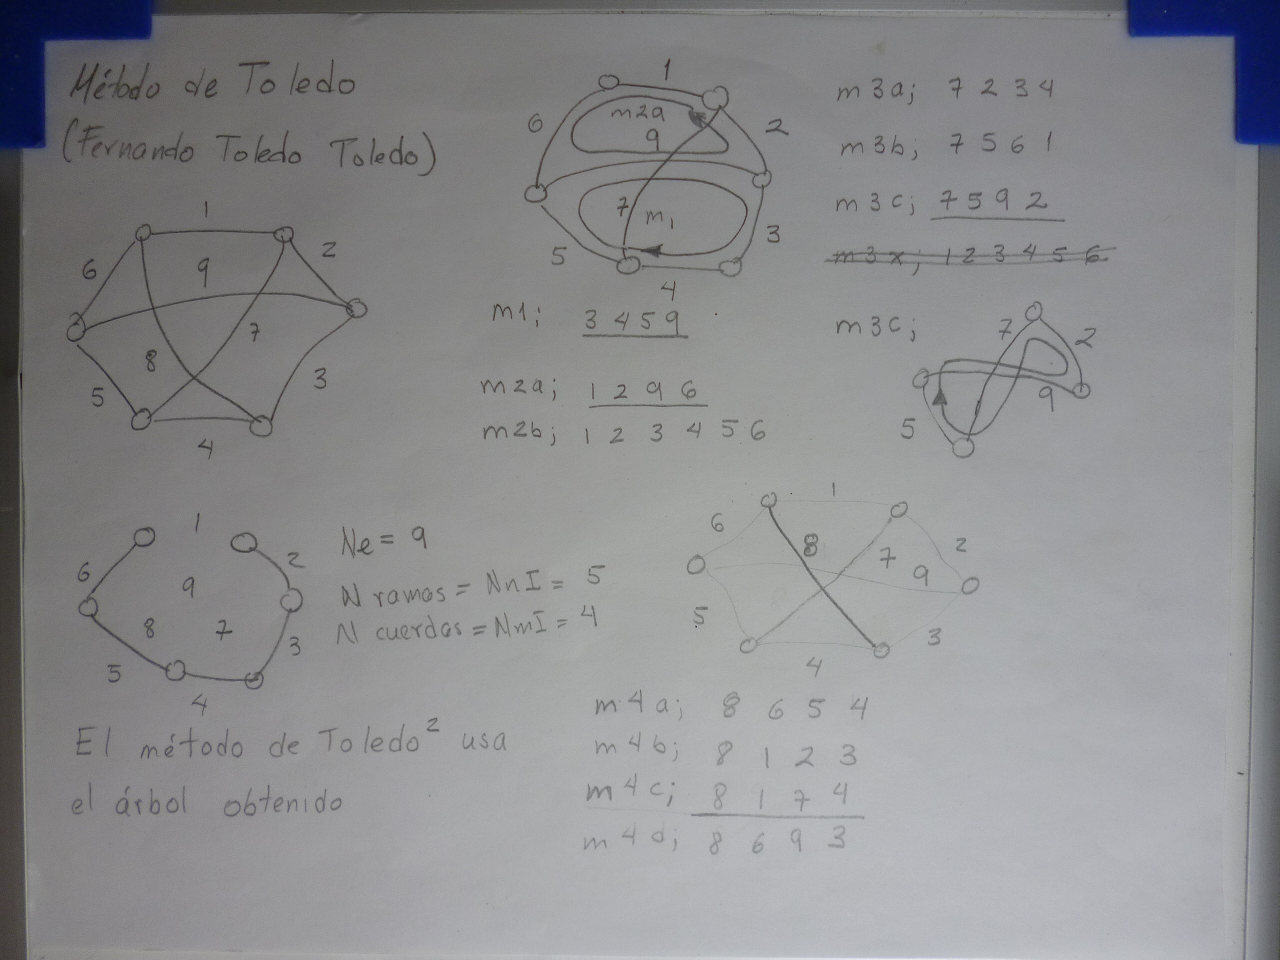 Método de Toledo
(Fernando Toledo Toledo)
1
2
3
4
5
6
7
8
9
1
2
3
4
5
6
7
m2a
9
m1
m1; 3 4 5 9
m2a; 1 2 9 6
m2b; 1 2 3 4 5 6
m3a; 7 2 3 4
m3b; 7 5 6 1
m3c; 7 5 9 2
m3x; 1 2 3 4 5 6
m3c;
7
2
9
5
1
2
3
4
5
6
7
8
9
Ne = 9
N ramas = NnI = 5
N cuerdas = NmI = 4
El método de Toledo² usa
el árbol obtenido
1
2
3
4
5
6
7
8
9
m4a; 8 6 5 4
m4b; 8 1 2 3
m4c; 8 1 7 4
m4d; 8 6 9 3